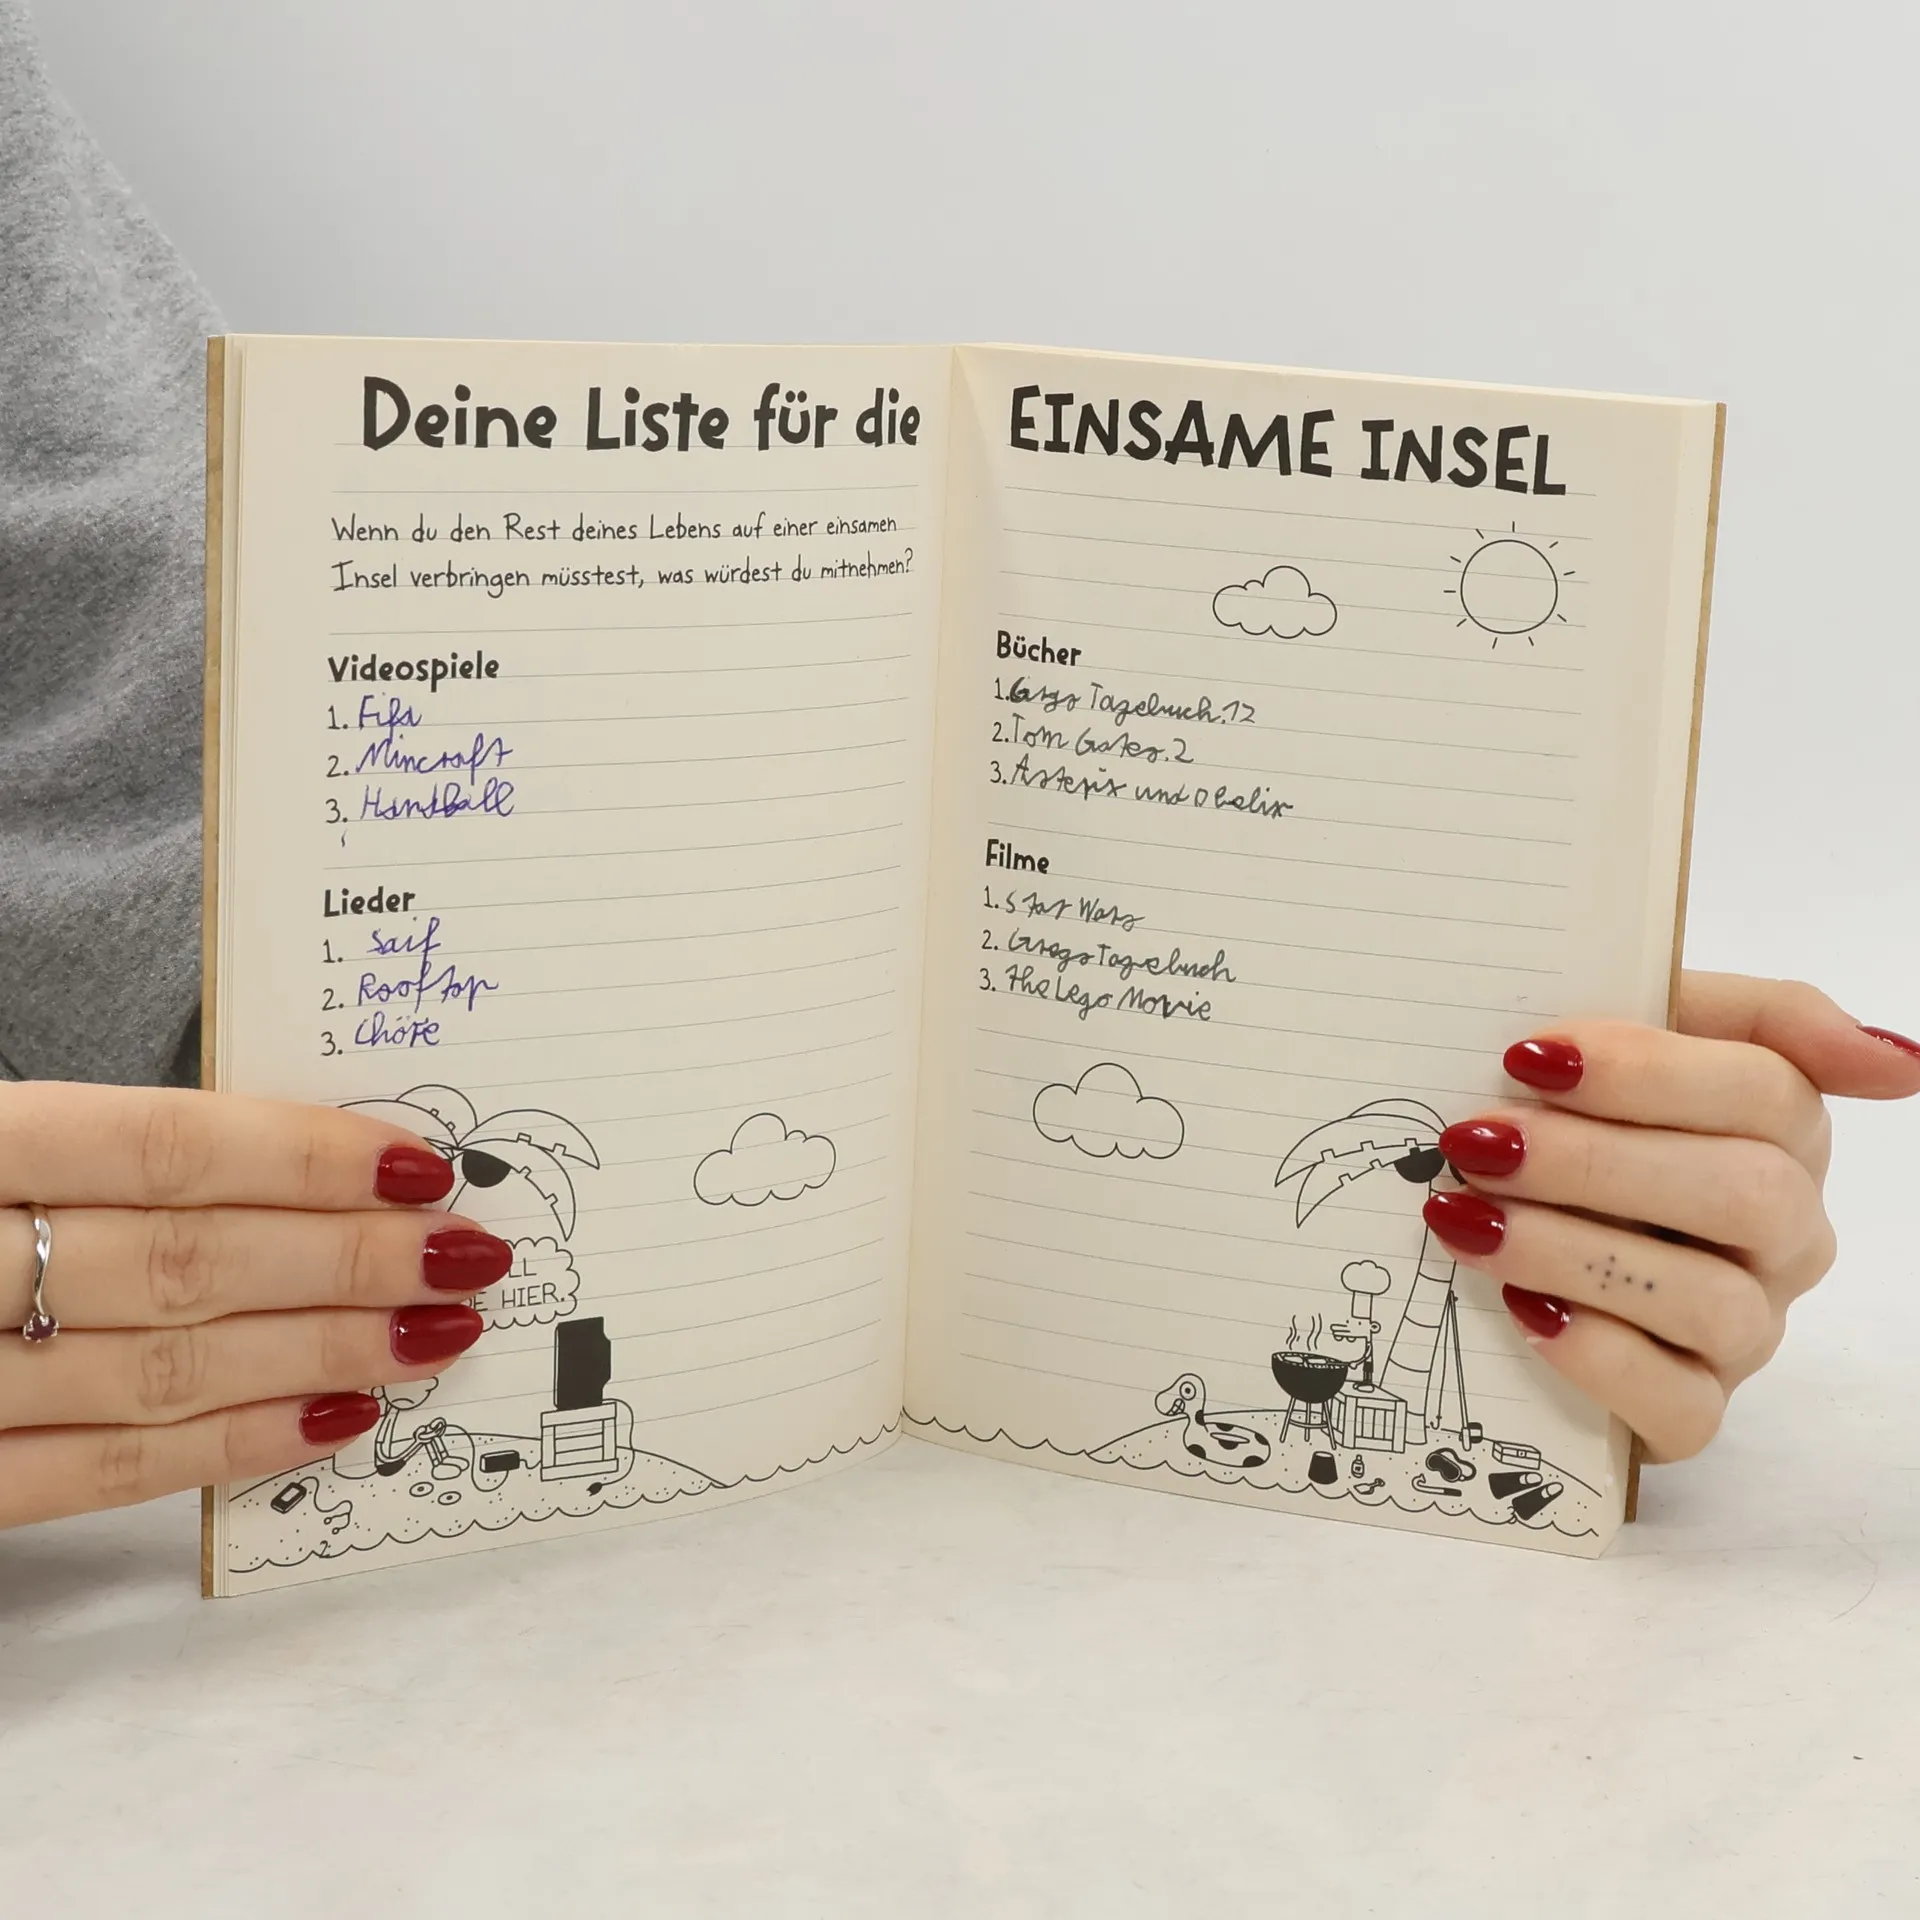 Deine Liste für die
Wenn du den Rest deines Lebens auf einer einsamen
Insel verbringen müsstest, was würdest du mitnehmen?
Videospiele
1. Fifa
2. Mincraft
3. Handball
Lieder
1. Saif
2. Rooftop
3. Chöre
LL
E HIER.
EINSAME INSEL
Bücher
1. Gregs Tagebuch.12
2. Tom Gates.2
3. Asterix und Obelix
Filme
1. Star Wars
2. Gregs Tagebuch
3. The Lego Movie